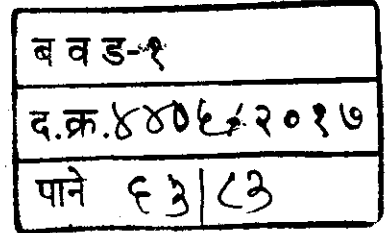 ब व ड-१
द.क्र.४४०६/२०१७
पाने ६३/८३